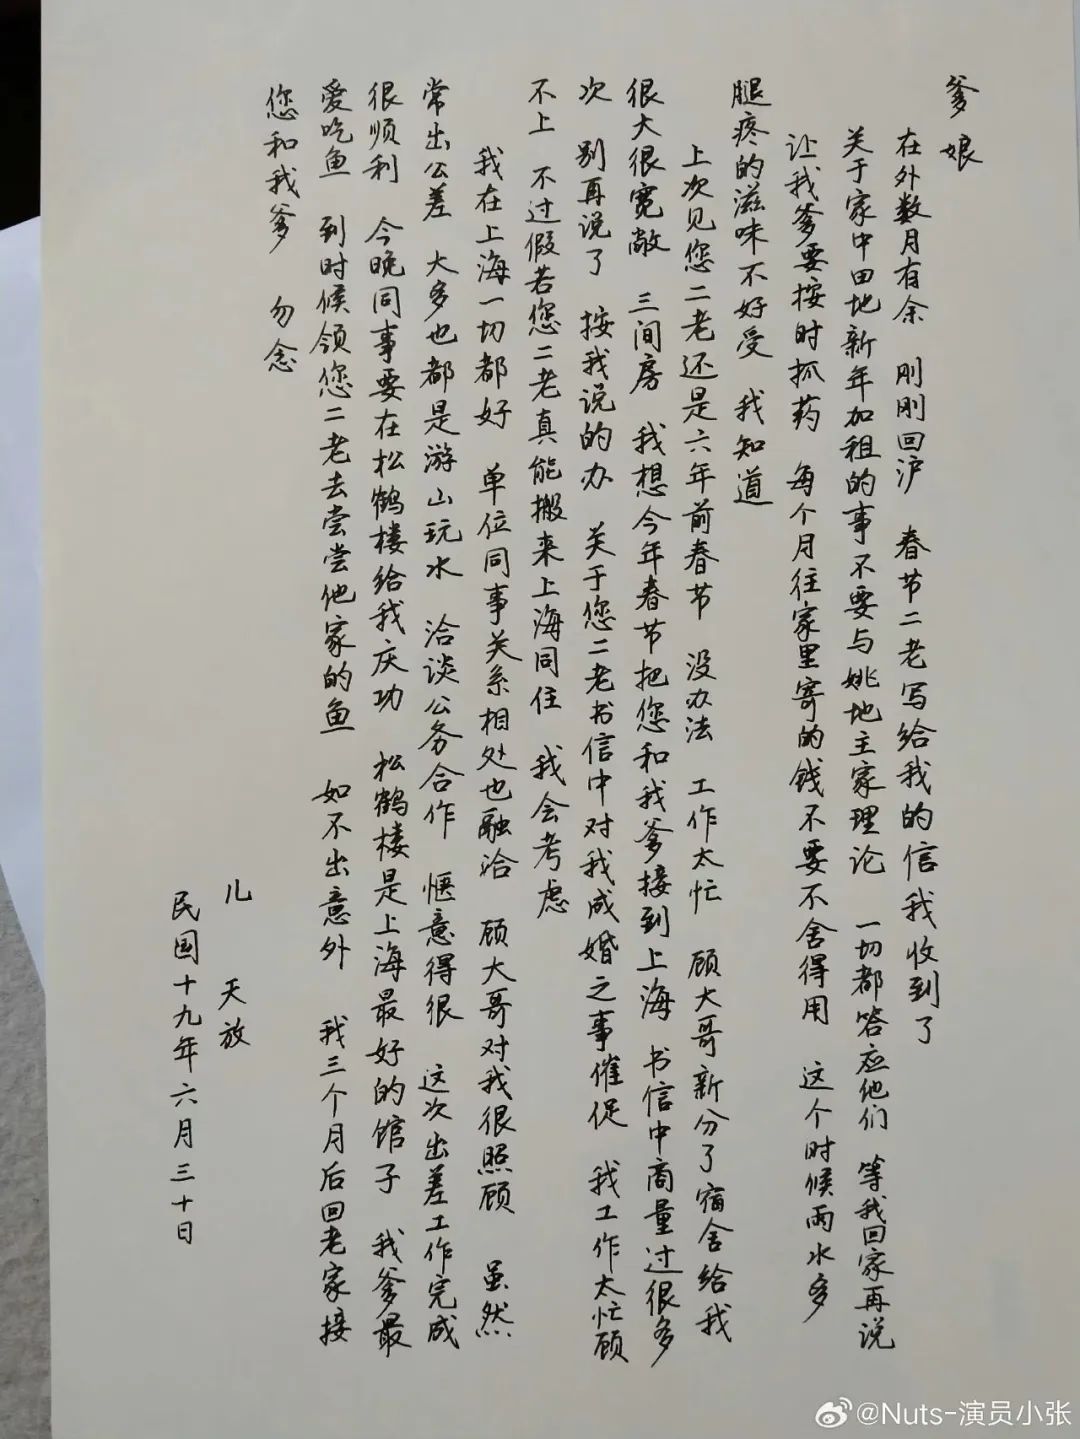 爹 娘
在外数月有余 刚刚回沪 春节二老写给我的信我收到了
关于家中田地新年加租的事不要与姚地主家理论 一切都答应他们 等我回家再说
让我爹要按时抓药 每个月往家里寄的钱不要不舍得用 这个时候雨水多
腿疼的滋味不好受 我知道
上次见您二老还是六年前春节 没办法 工作太忙 顾大哥新分了宿舍给我
很大很宽敞 三间房 我想今年春节把您和我爹接到上海 书信中商量过很多
次 别再说了 按我说的办 关于您二老书信中对我成婚之事催促 我工作太忙顾
不上 不过假若您二老真能搬来上海同住 我会考虑
我在上海一切都好 单位同事关系相处也融洽 顾大哥对我很照顾 虽然
常出公差 大多也都是游山玩水 洽谈公务合作 惬意得很 这次出差工作完成
很顺利 今晚同事要在松鹤楼给我庆功 松鹤楼是上海最好的馆子 我爹最
爱吃鱼 到时候领您二老去尝尝他家的鱼 如不出意外 我三个月后回老家接
您和我爹 勿念
儿 天放
民国十九年六月三十日
@Nuts-演员小张